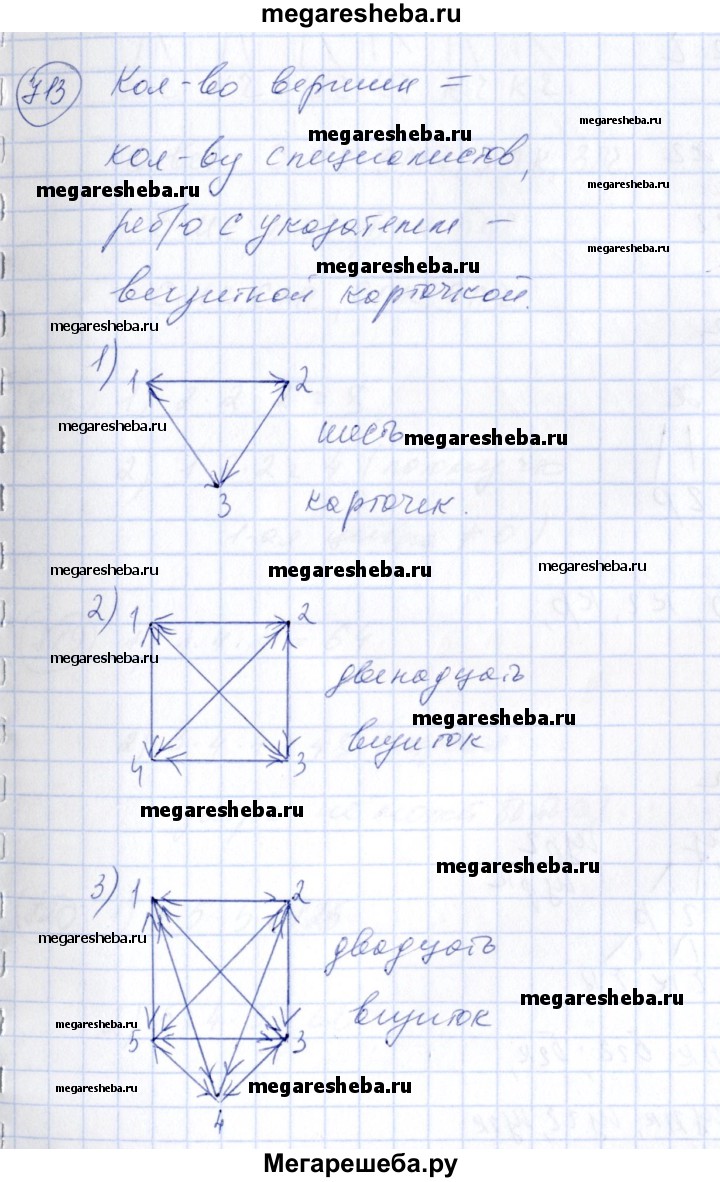 megaresheba.ru
713 Кол-во вершин =
megaresheba.ru
megaresheba.ru
кол-ву специалистов,
megaresheba.ru
megaresheba.ru
ребро с указателем –
megaresheba.ru
megaresheba.ru
визитной карточкой.
megaresheba.ru
1) 1 2
megaresheba.ru
шесть
megaresheba.ru
3 карточек.
megaresheba.ru
megaresheba.ru
megaresheba.ru
2) 1 2
megaresheba.ru
двенадцать
megaresheba.ru
визиток
4 3
megaresheba.ru
megaresheba.ru
3) 1 2
megaresheba.ru
двадцать
megaresheba.ru
визиток
megaresheba.ru
5 3
megaresheba.ru
megaresheba.ru
4
Мегарешеба.ру